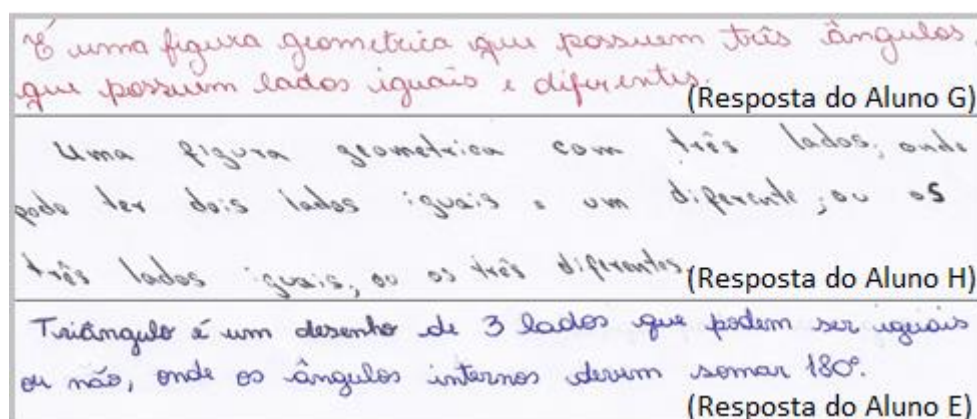 É uma figura geometrica que possuem três ângulos,
que possuem lados iguais e diferentes.
(Resposta do Aluno G)
Uma figura geometrica com três lados, onde
pode ter dois lados iguais e um diferente, ou os
três lados iguais, ou os três diferentes.
(Resposta do Aluno H)
Triângulo é um desenho de 3 lados que podem ser iguais
ou não, onde os ângulos internos devem somar 180º.
(Resposta do Aluno E)